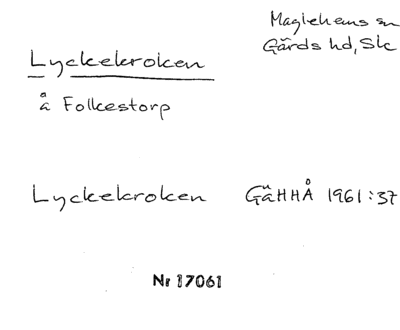 Maglehems sn
Gärds hd, Sk
Lyckekroken
å Folkestorp
Lyckekroken GäHHÅ 1961:37
Nr 17061